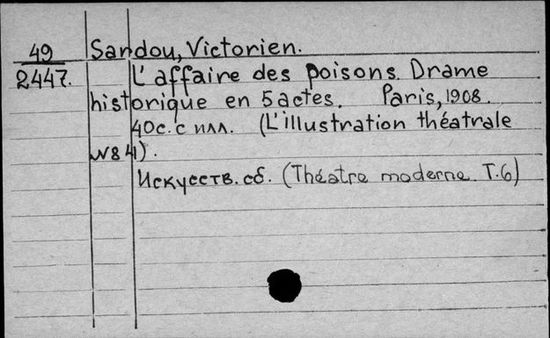 49 Sardou, Victorien.
2447. L'affaire des poisons. Drame
historique en 5 actes. Paris, 1908.
40с. с илл. (L'illustration théatrale
N84).
Искусств. сб. (Théatre moderne. T.6)